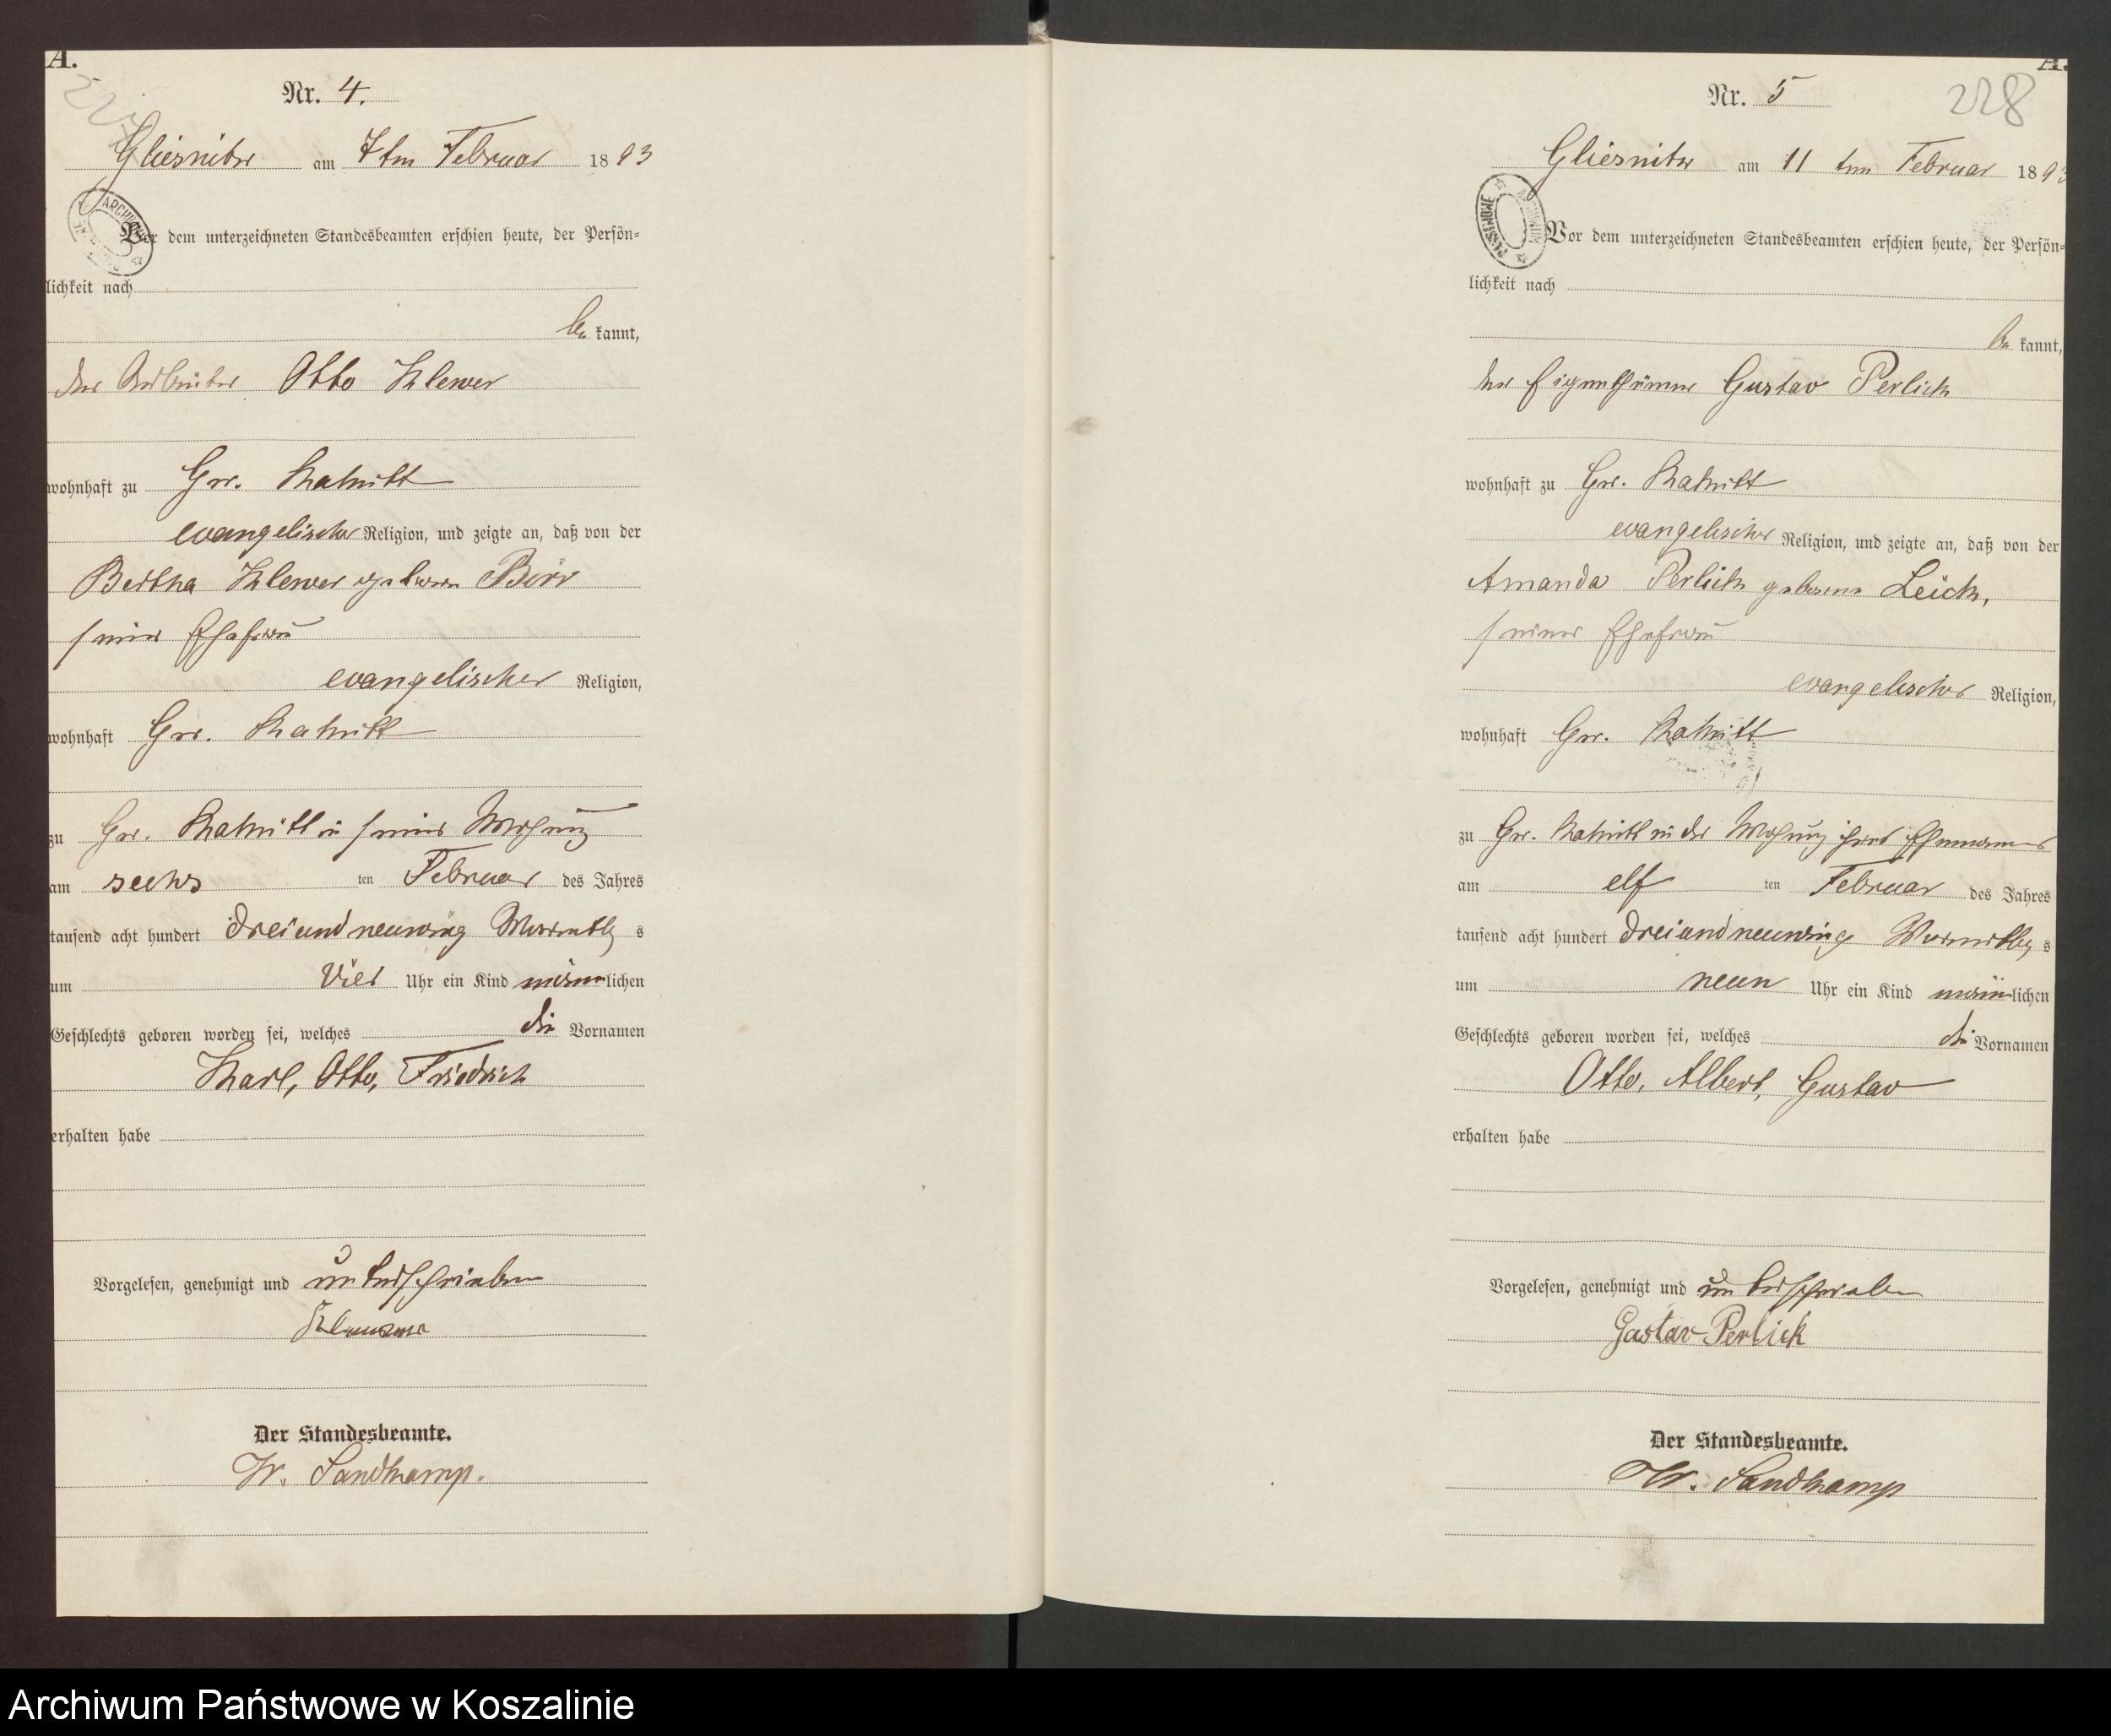 A.
Nr. 4.
Gliesnitz am 7ten Februar 1893
Vor dem unterzeichneten Standesbeamten erschien heute, der Persön=
lichkeit nach
be kannt,
der Arbeiter Otto Klewer
wohnhaft zu Gr. Katnitt
evangelischer Religion, und zeigte an, daß von der
Bertha Klewer geborene
seiner Ehefrau
evangelischer Religion,
wohnhaft Gr. Katnitt
zu Gr. Katnitt in seiner Wohnung
am sechs ten Februar des Jahres
tausend acht hundert dreiundneunzig Vormittag s
um vier Uhr ein Kind männlichen
Geschlechts geboren worden sei, welches die Vornamen
Karl, Otto, Friedrich
erhalten habe
Vorgelesen, genehmigt und unterschrieben
Der Standesbeamte.
W. Sandkamp.
A.
228
Nr. 5
Gliesnitz am 11 ten Februar 1893
Vor dem unterzeichneten Standesbeamten erschien heute, der Persön=
lichkeit nach
be kannt,
der Eigenthümer Gustav Perlick
wohnhaft zu Gr. Katnitt
evangelischer Religion, und zeigte an, daß von der
Amanda Perlick geborene Leick,
seiner Ehefrau
evangelischer Religion,
wohnhaft Gr. Katnitt
zu Gr. Katnitt in der Wohnung ihres Ehemannes
am elf ten Februar des Jahres
tausend acht hundert dreiundneunzig Vormittag s
um neun Uhr ein Kind männlichen
Geschlechts geboren worden sei, welches die Vornamen
Otto, Albert, Gustav
erhalten habe
Vorgelesen, genehmigt und unterschrieben
Gustav Perlick
Der Standesbeamte.
W. Sandkamp
Archiwum Państwowe w Koszalinie